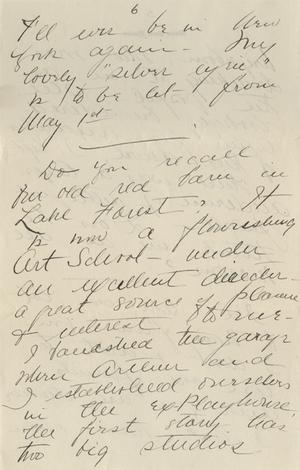 6
I'll not be in New
York again - My
lovely "silver
is to be let from
May 1st
Do you recall
our old red barn in
Lake Forest? It
is now a flourishing
Art School - under
an excellent director -
a great source of pleasure
& interest to me -
I the garage
when Arthur and
I established ourselves
in the ex Playhouse,
the first story has
two big studios